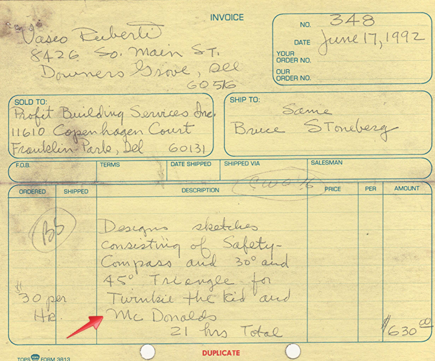 INVOICE
NO. 348
Vasco Ruberti
DATE June 17, 1992
8426 So. Main St.
YOUR ORDER NO.
Downers Grove, Ill
OUR ORDER NO.
SOLD TO:
SHIP TO: Same
Profit Building Services Inc.
Bruce Stoneberg
11610 Copenhagen Court
Franklin-Park, Ill 60131
F.O.B. TERMS DATE SHIPPED SHIPPED VIA SALESMAN
ORDERED SHIPPED DESCRIPTION PRICE PER AMOUNT
Designs sketches
consisting of Safety-
Compass and 30° and
45° Triangle for
$30 per Twinkie the Kid and
Hr McDonalds
21 hrs Total $630 00
TOPS FORM 3813
DUPLICATE